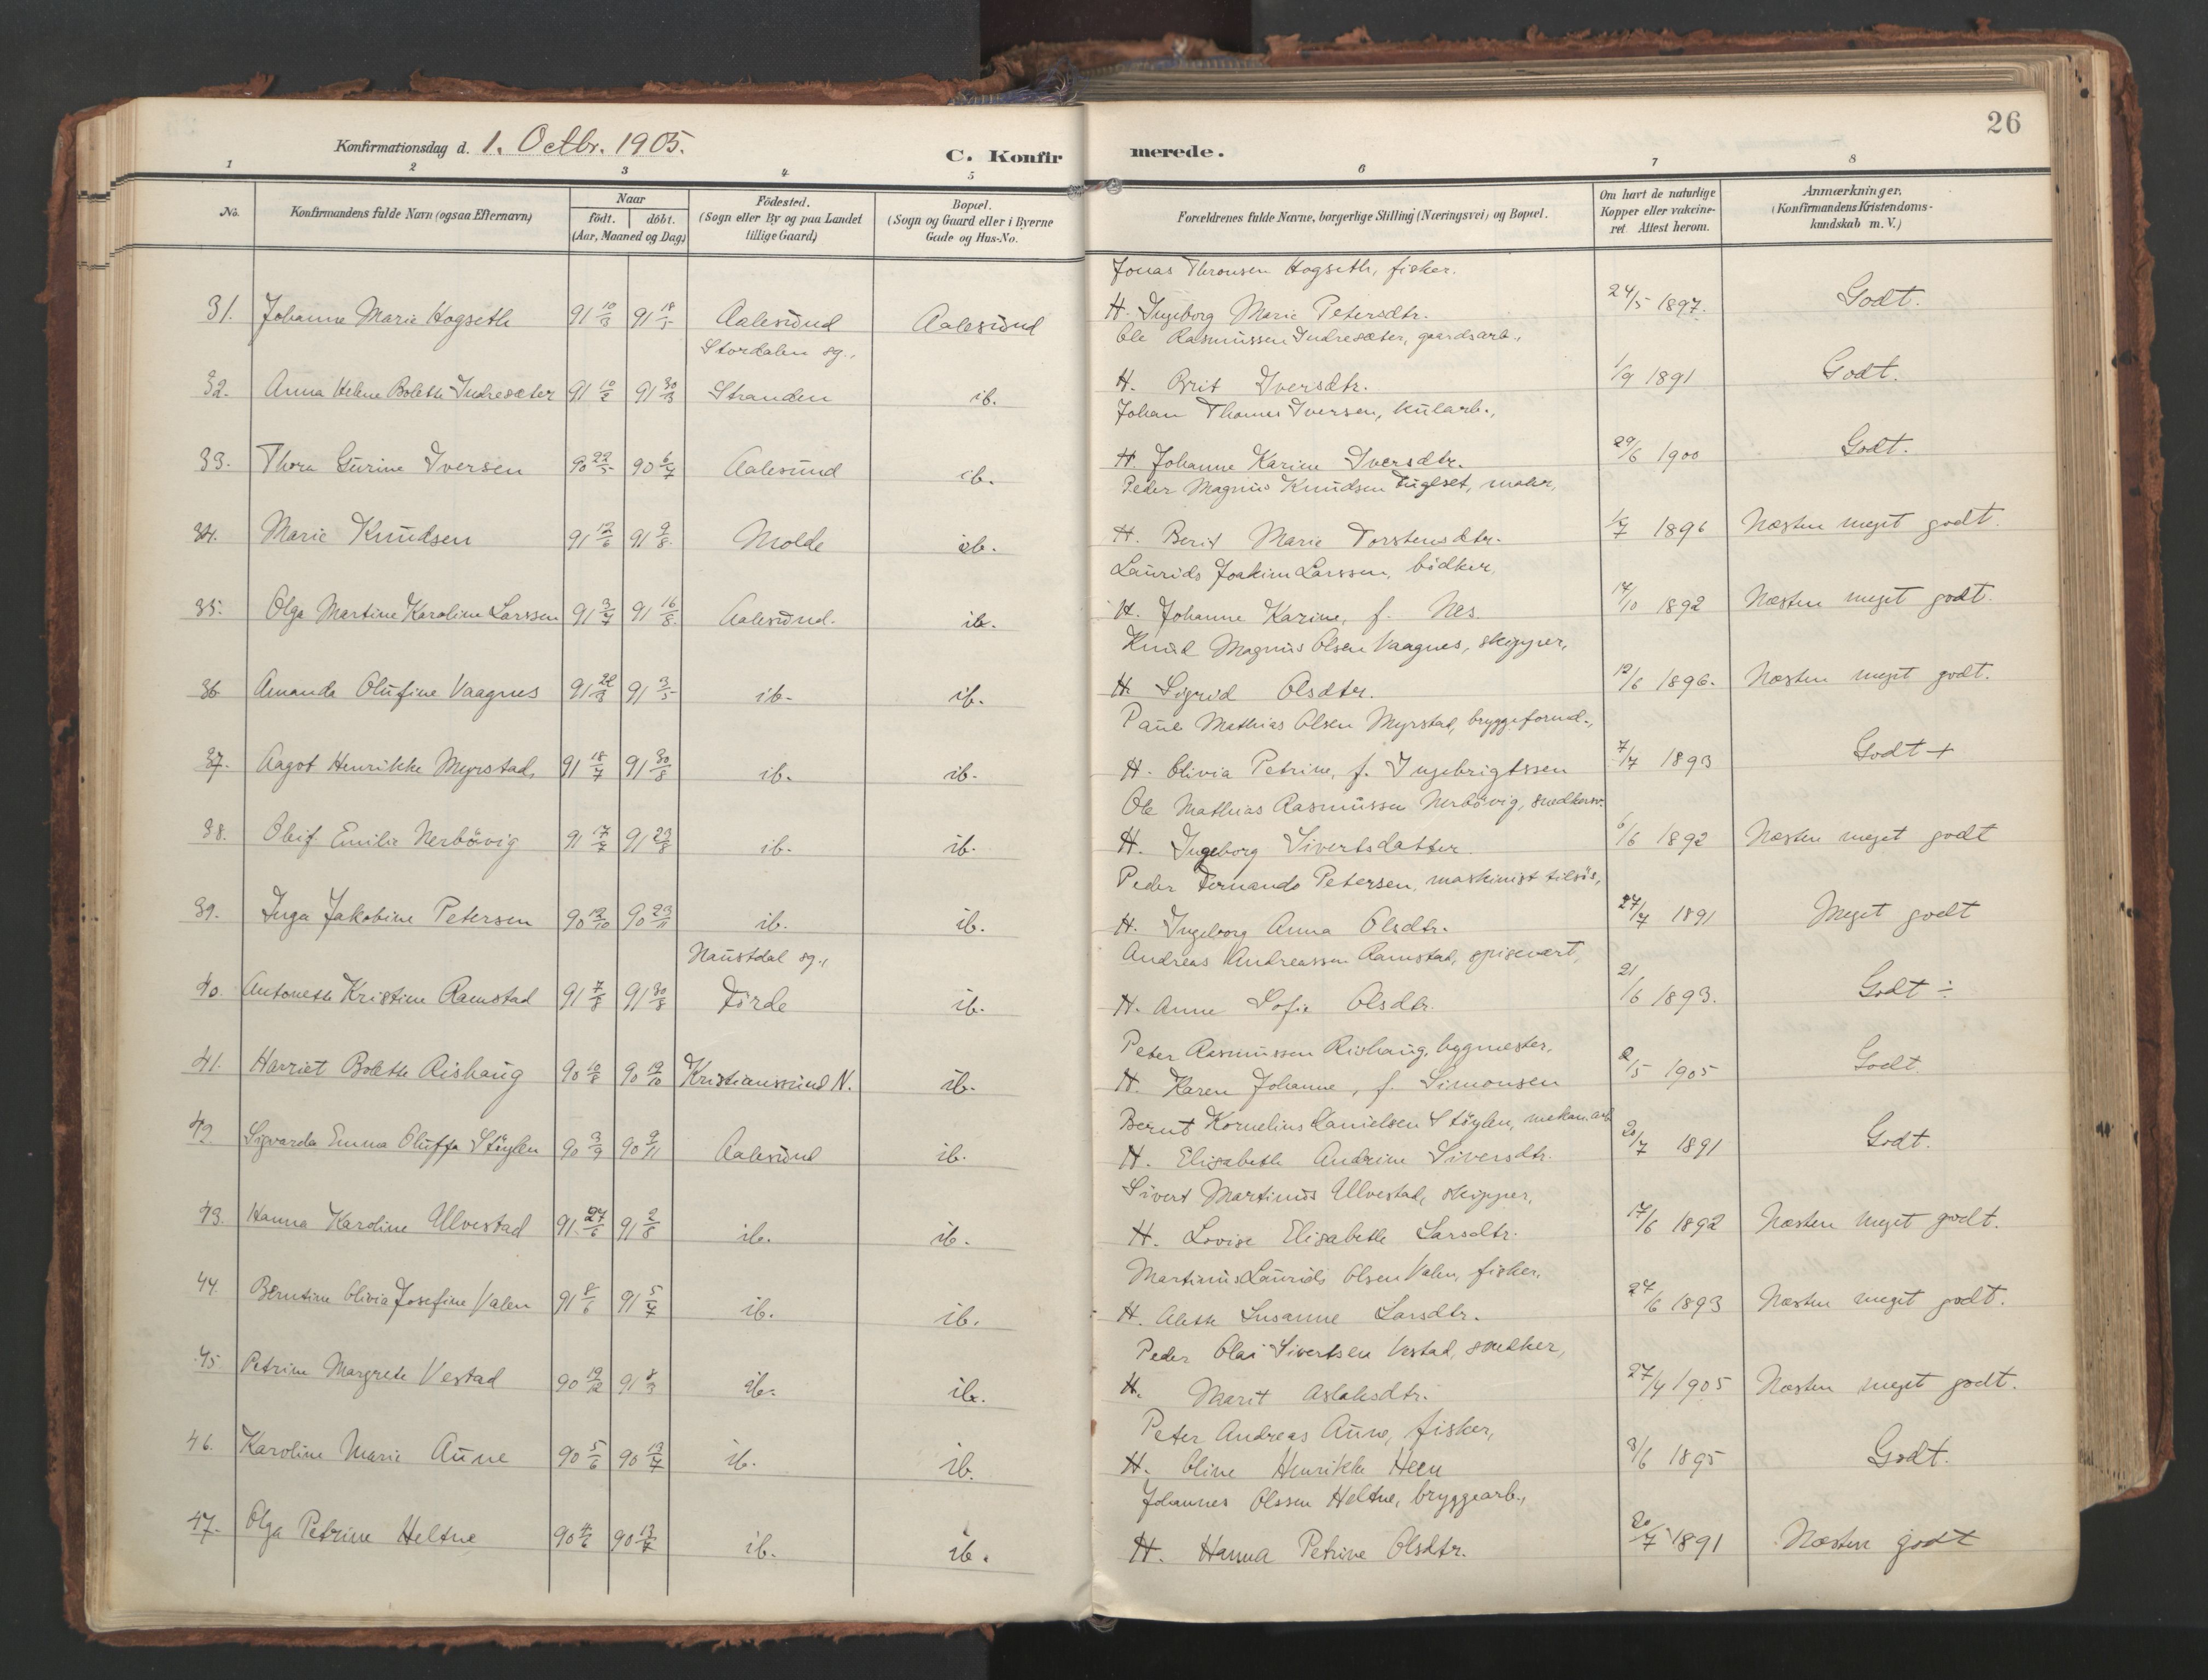 26
Konfirmationsdag d. 1. Octbr. 1905.
C. Konfirmerede.
1 2 3 4 5 6 7 8
No.
Konfirmandens fulde Navn (ogsaa Efternavn)
Naar
födt. döbt.
(Aar, Maaned og Dag)
Födested.
(Sogn eller By og paa Landet
tillige Gaard)
Bopæl.
(Sogn og Gaard eller i Byerne
Gade og Hus-No.
Forældrenes fulde Navne, borgerlige Stilling (Næringsvei) og Bopæl.
Om havt de naturlige
Kopper eller vakcine-
ret Attest herom.
Anmærkninger.
(Konfirmandens Kristendoms-
kundskab m.V.)
Jonas Thronsen Hogseth, fisker.
31. Johanne Marie Hogseth 91 10/3 91 18/5 Aalesund Aalesund H. Ingeborg Marie Petersdtr. 24/5 1897. Godt.
Stordalen sg., Ole Rasmussen Indresæter, gaardsarb.,
32. Anna Helene Bolette Indresæter 91 10/2 91 30/3 Stranden ib. H. Brit Iversdtr. 1/9 1891 Godt.
Johan Thomas Iversen, kularb.,
33. Thora Gurine Iversen 90 22/5 90 6/7 Aalesund ib. H. Johanne Karine Iversdtr. 29/6 1900 Godt.
Peder Magnus Knudsen Fuglset, maler,
34. Marie Knudsen 91 12/6 91 9/8 Molde ib. H. Berit Marie Torstensdtr. 1896 Næsten meget godt.
Laurids Joakim Larssen, bödker,
35. Olga Martine Karoline Larssen 91 3/7 91 16/8 Aalesund. ib. H. Johanne Karine, f. Næs 14/10 1892 Næsten meget godt.
Knud Magnus Olsen Vaagnes, skipper,
36 Amanda Olufine Vaagnes 91 22/3 91 3/5 ib. ib. H. Sigrid Olsdtr. 12/6 1896. Næsten meget godt.
Paul Mathias Olsen Myrstad, bryggeformd.,
37. Aagot Henrikke Myrstad, 91 18/7 91 30/8 ib. ib. H. Olivia Petrine, f. Ingebrigtssen 7/7 1893 Godt +
Ole Mathias Rasmussen Nerbövig, snedkersv.
38. Oleif Emilie Nerbövig 91 17/7 91 23/8 ib. ib. H. Ingeborg Sivertsdatter. 6/6 1892 Næsten meget godt
Peder Fernando Petersen, maskinist tilsös,
39. Inga Jakobine Petersen 90 12/10 90 23/11 ib. ib. H. Ingeborg Anna Olsdtr. 27/7 1891 Meget godt
Naustdal sg., Andreas Andreassen Ramstad, spisevært,
40. Antonette Kristine Ramstad 91 7/8 91 30/8 Förde ib. H. Anne Sofie Olsdtr. 21/6 1893. Godt ÷
Peter Rasmussen Rishaug, bygmester,
41. Harriet Bolette Rishaug 90 10/8 90 12/10 Kristiansund N. ib. H. Karen Johanne, f. Simonsen 2/5 1905 Godt.
Bernt Kornelius Danielsen Stöylen, mekan. arb
42. Sigvarda Emma Oluffa Stöylen 90 3/9 90 9/11 Aalesund ib. H. Elisabeth Andrine Siversdtr. 20/7 1891 Godt.
Sivert Martinus Ulvestad, skipper,
43. Hanna Karoline Ulvestad 91 27/6 91 2/8 ib. ib. H. Lovise Elisabeth Larsdtr. 17/6 1892 Næsten meget godt.
Martinus Laurids Olsen Valen, fisker,
44. Berntine Olivia Josefine Valen 91 8/6 91 5/7 ib. ib. H. Alette Susanne Larsdtr. 27/6 1893 Næsten meget godt.
Peder Olai Sivertsen Vestad, snedker,
45 Petrine Margrete Vestad 90 12/12 91 8/3 ib. ib. H. Marit Aslaksdtr. 27/4 1905 Næsten meget godt.
Peter Andreas Aune, fisker,
46. Karoline Marie Aune 90 5/6 90 13/7 ib. ib. H. Oline Henrikke Heen 3/6 1895 Godt.
Johannes Olssen Heltne, bryggearb.,
47. Olga Petrine Heltne 90 4/6 90 13/7 ib. ib. H. Hanna Petrine Olsdtr. 20/7 1891 Næsten godt